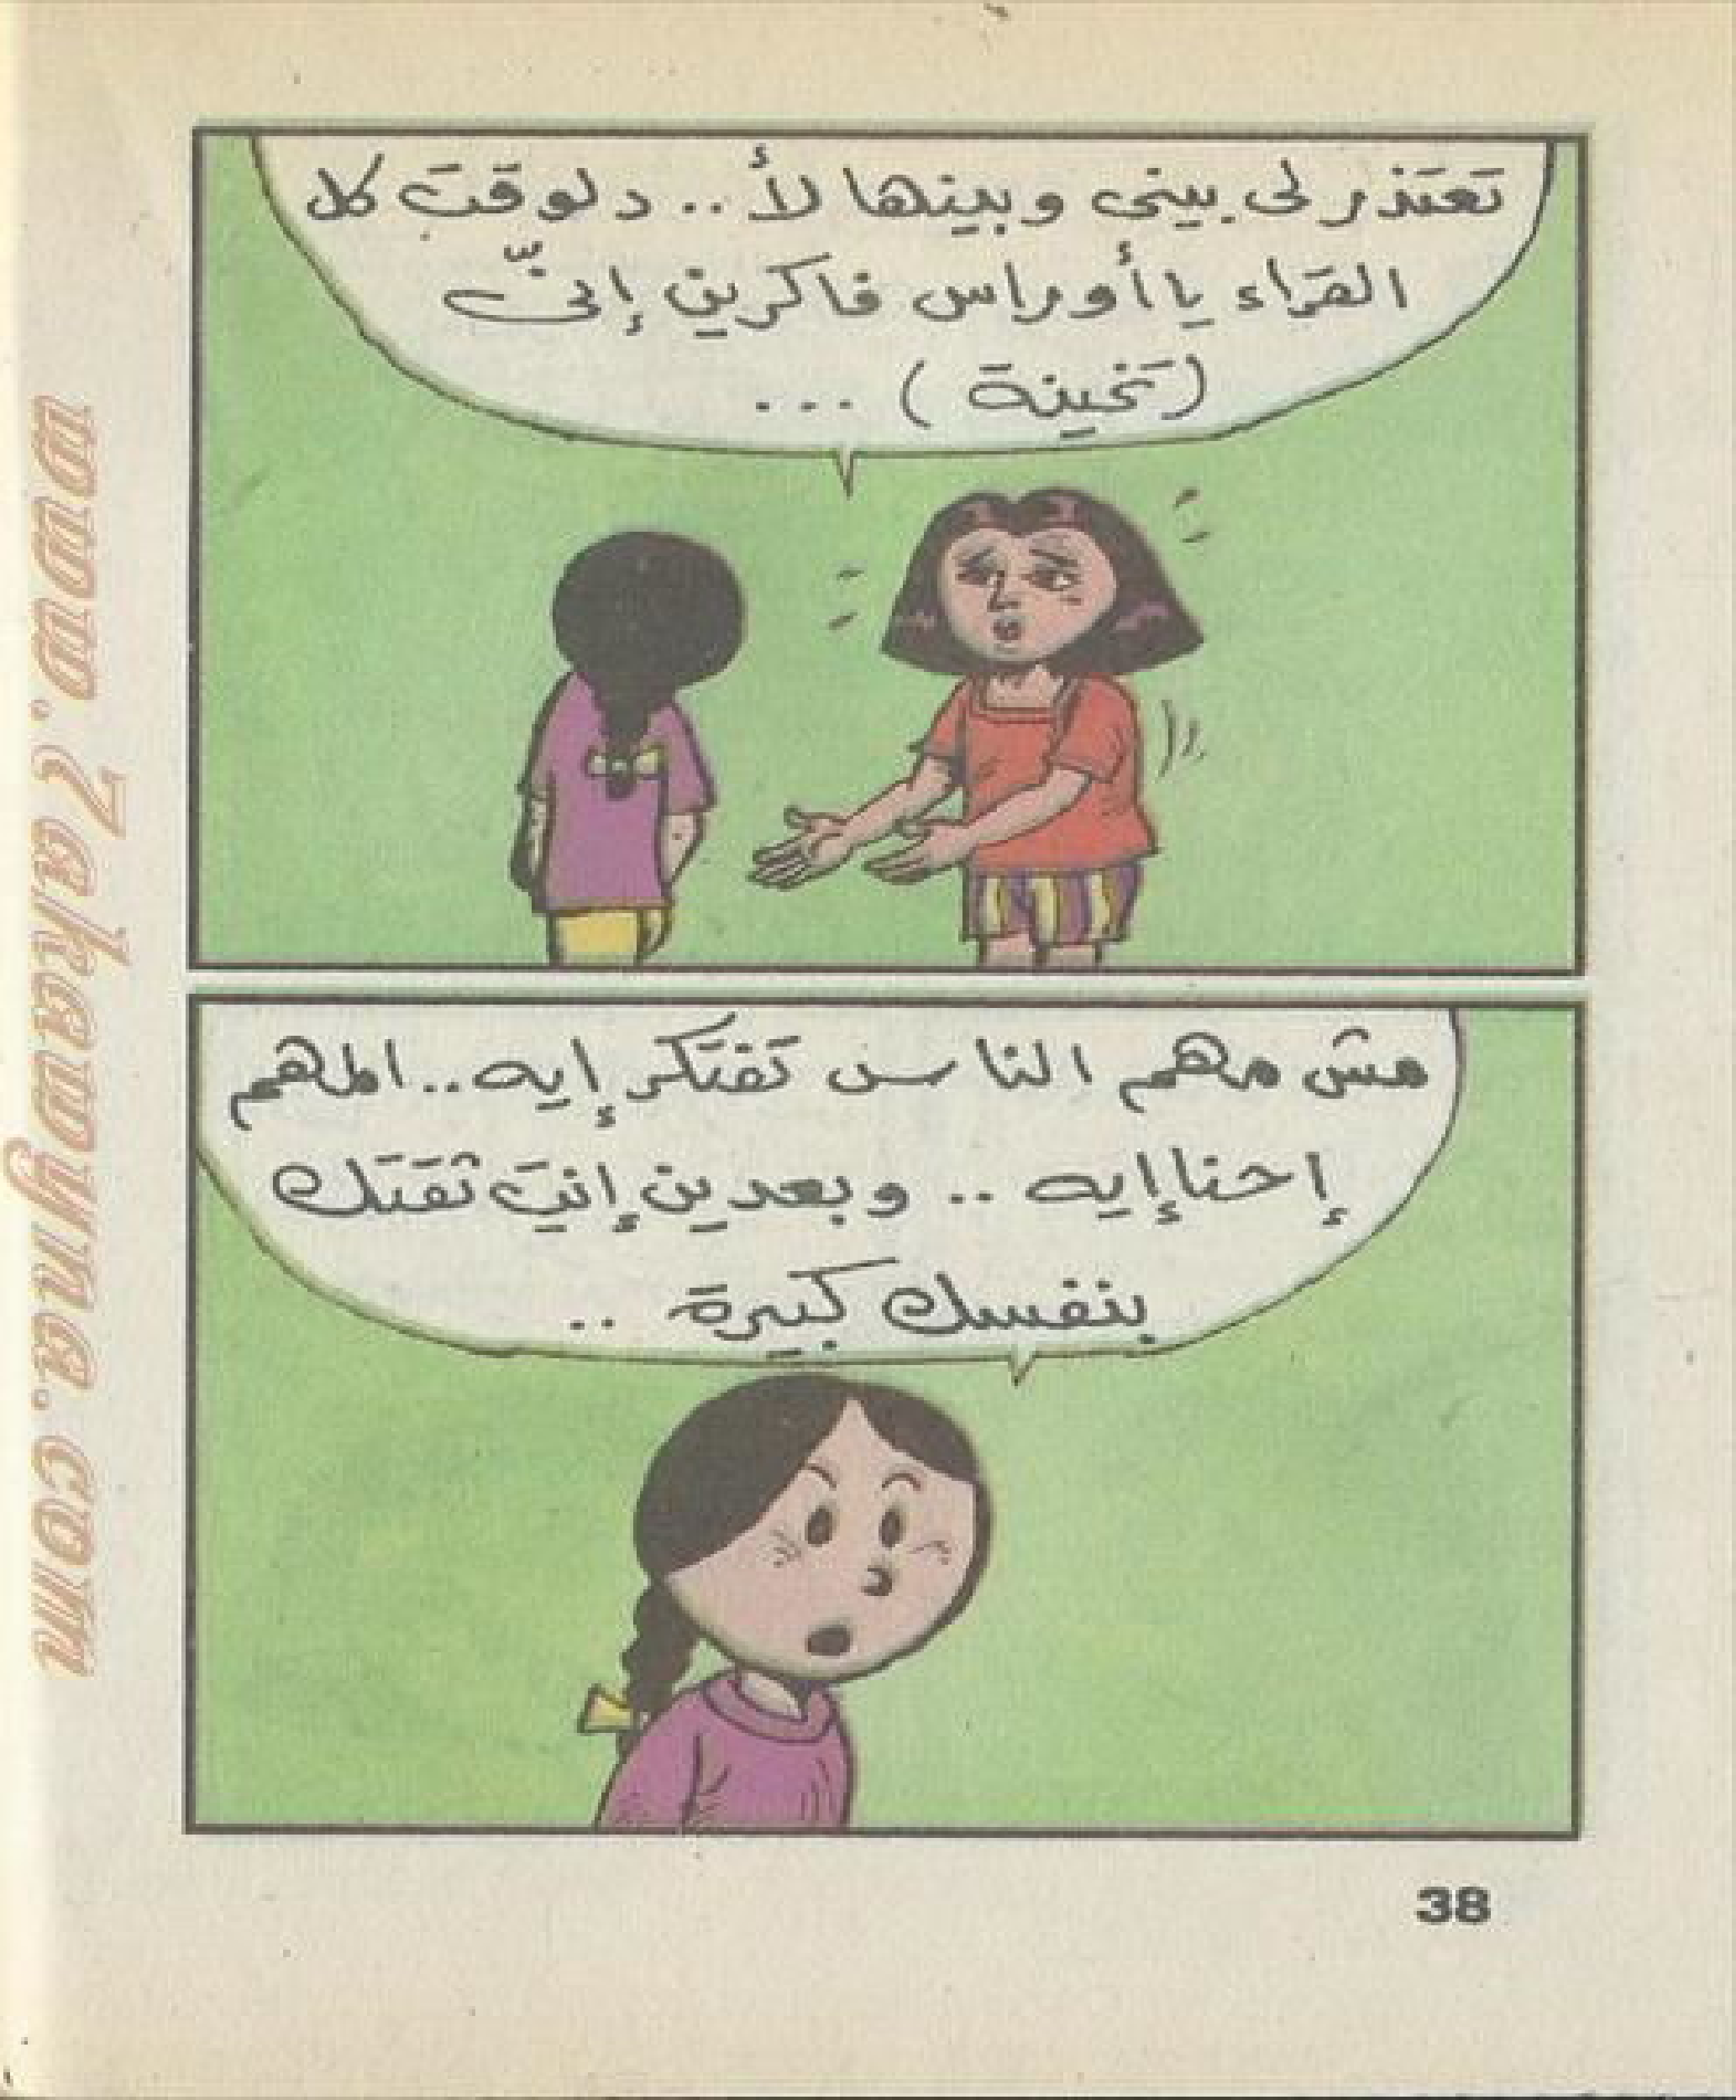 تَعتَذر لى بينى وبينها لأ.. دلوقتَ كل
القرّاء يا أوراس فاكرين إنّى
(تَخينة) ...
مش مهم الناس تَفتَكر إيه.. المهم
إحنا إيه .. وبعدين إنتِ ثقتَك
بنفسك كبيرة ..
38
www.7akawyna.com